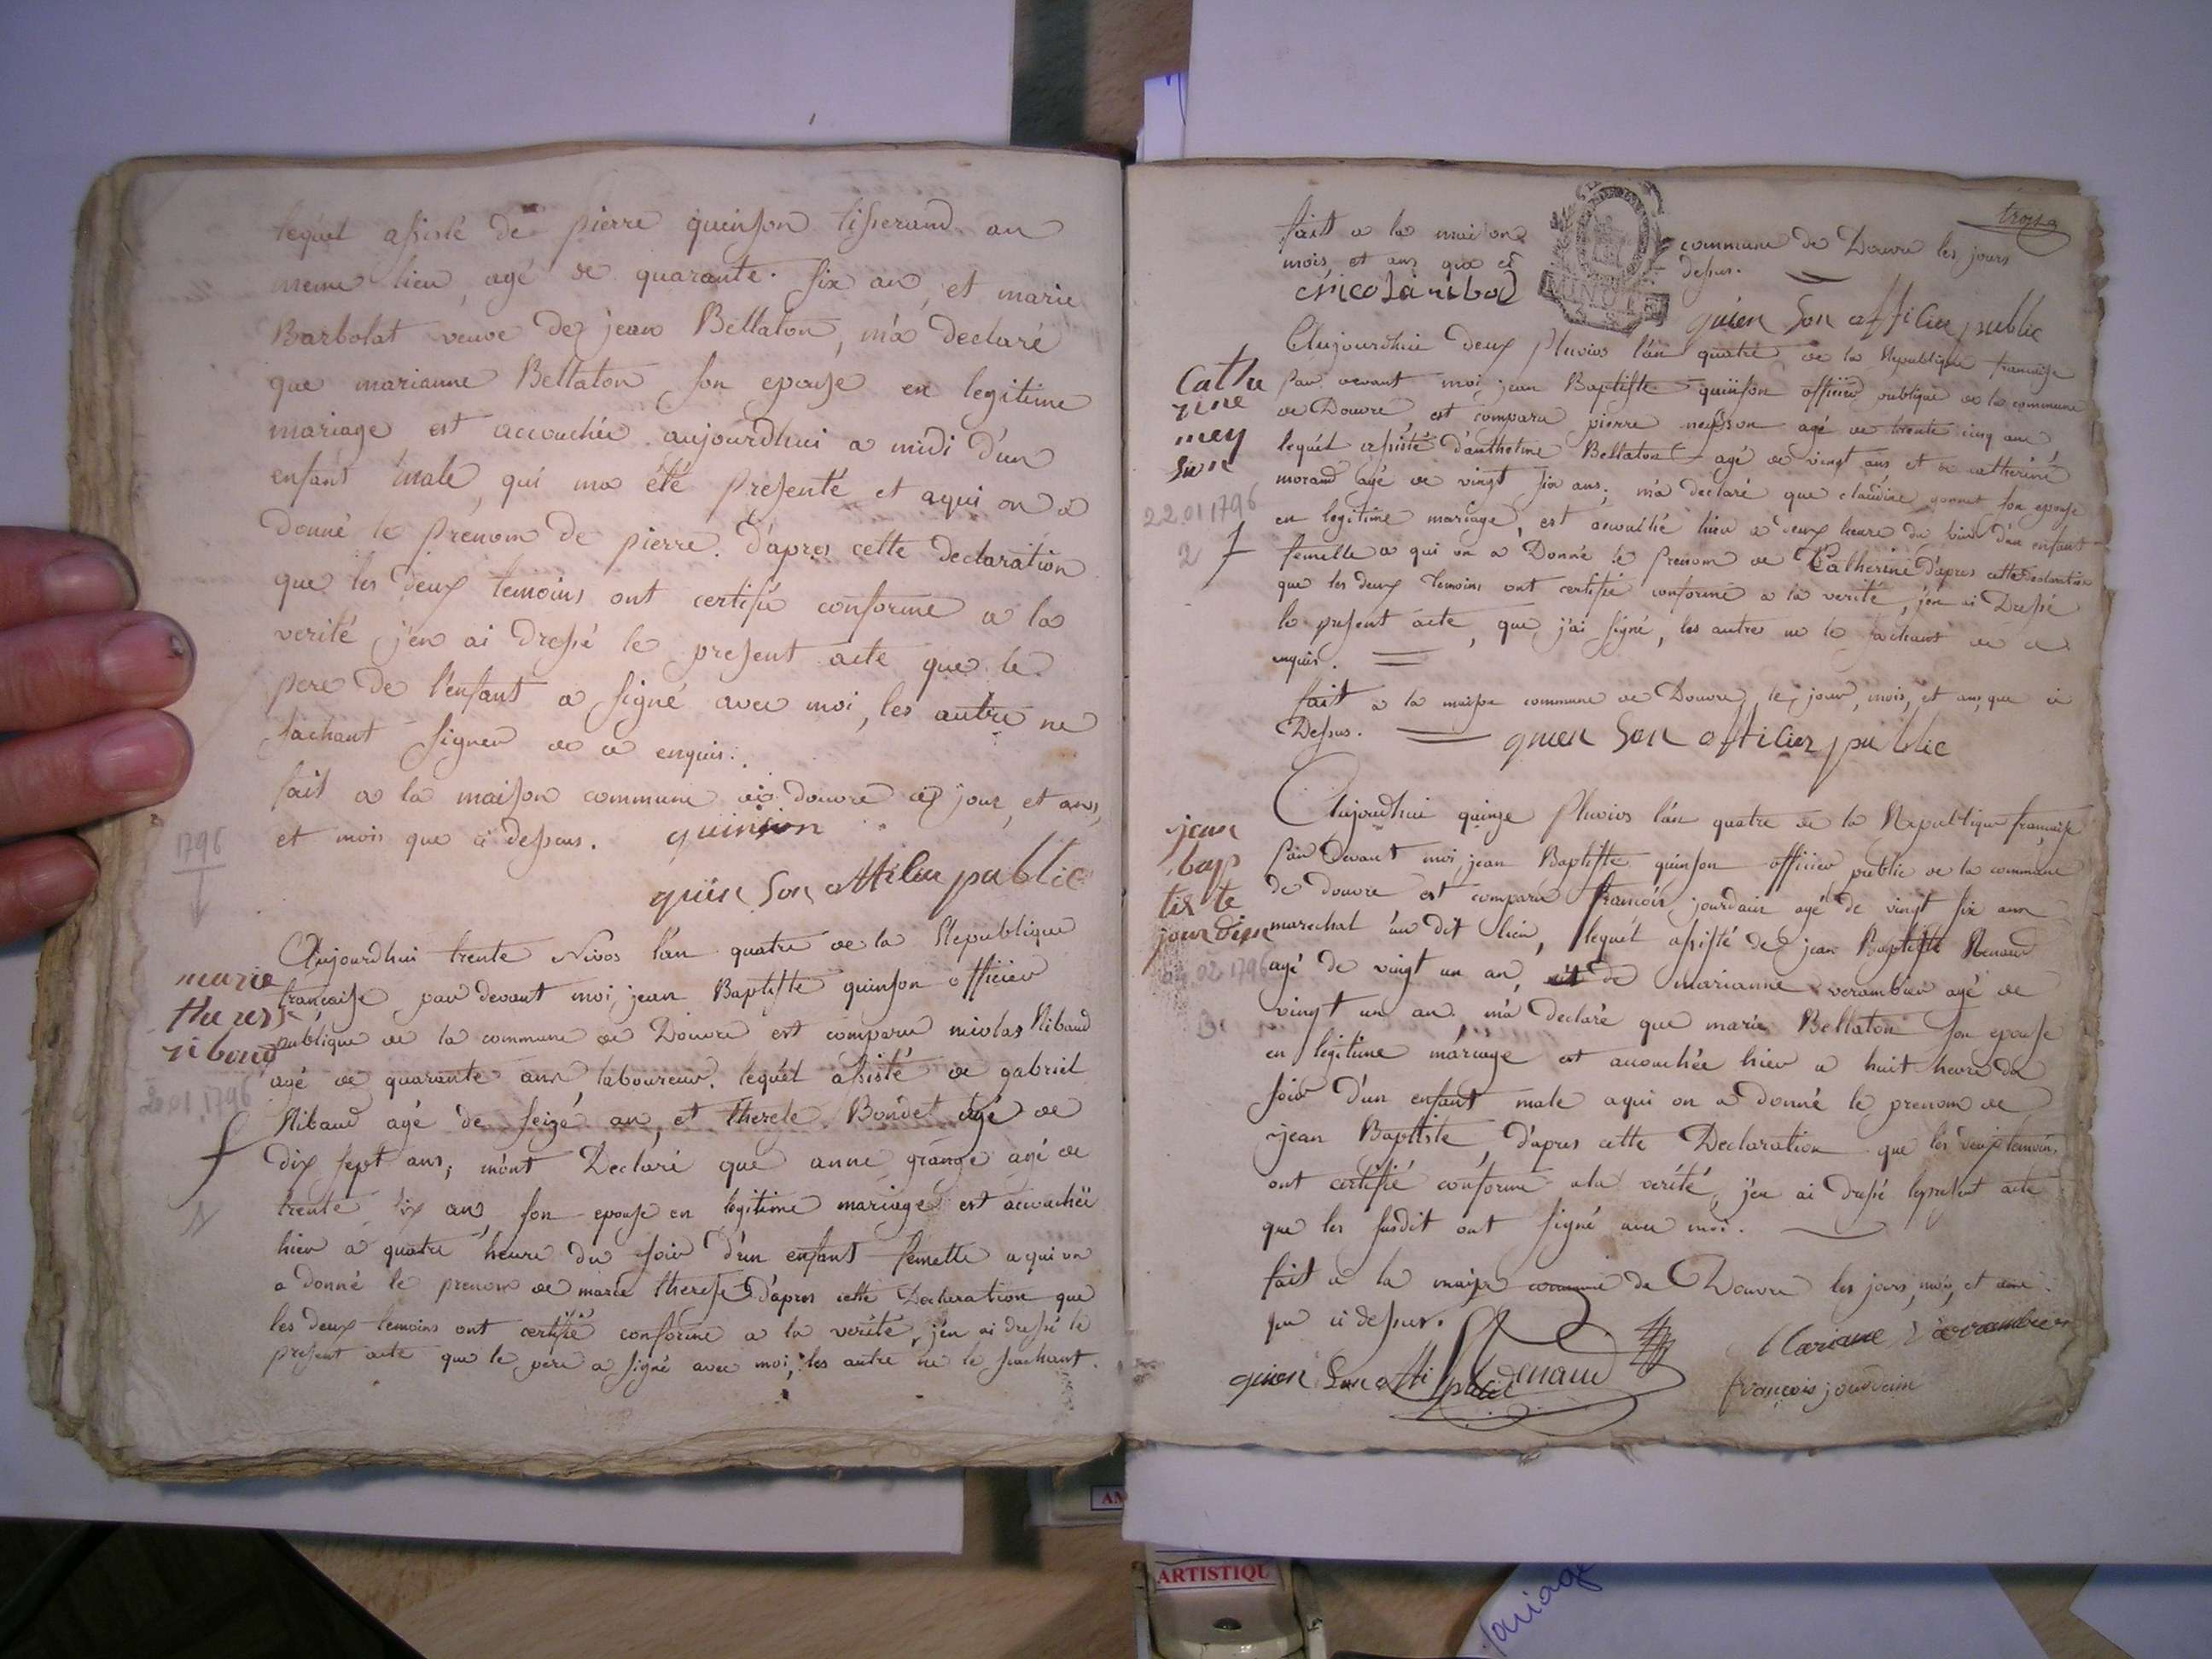 lequel assisté de pierre quinson tisserand au
meme lieu, agé de quarante six an, et marie
Barbolat veuve de jean Bellaton, m'a declaré
que marianne Bellaton son epouse en legitime
mariage est accouchée aujourdhui a midi d'un
enfant male, qui ma été presenté et aqui on a
donné le prenom de pierre. d'apres cette declaration
que les deux temoins ont certifié conforme a la
verité j'en ai dressé le present acte que le
pere de l'enfant a signé avec moi, les autre ne
sachant signer de ce enquis.
fait a la maison commune de douvre les jour, et ans,
et mois que ci dessus. quinson
quin son officier public
1796
marie
therese
ribaud
20.01.1796
f
1
Aujourdhui trente Nivos l'an quatre de la Republique
française par devant moi jean Baptiste quinson officier
publique de la commune de Douvre est comparu nicolas Ribaud
agé de quarante ans laboureur. lequel assisté de gabriel
Ribaud agé de seize an, et therese Bondet agé de
dix sept ans, m'ont Declaré que anne grange agé de
trente six an, son epouse en legitime mariage est accouchée
hier a quatre heure du soir d'un enfant femelle a qui on
a donné le prenom de marie therese d'apres cette Declaration que
les deux temoins ont certifié conforme a la verité, j'en ai dressé le
present acte que le pere a signé avec moi, les autre ne le sachant.
fait a la maison commune de Douvre les jours
mois et ans que ci dessus.
MINUTE
quien son officier public
Cathe
rine
ney
son
22.01.1796
2 f
Aujourdhui deux Pluvios l'an quatre de la Republique française
Par devant moi jean Baptiste quinson officier publique de la commune
de Douvre est comparu pierre neysson agé de trente cinq ans,
lequel assisté d'anthelme Bellaton agé de vingt ans et de catherine
morand agé de vingt six ans, m'a declaré que claudine son epouse
en legitime mariage, est accouchée hier a deux heure du soir d'un enfant
femelle a qui on a Donné le prenom de Catherine d'apres cette declaration
que les deux temoins ont certifié conforme a la verité, j'en ai Dressé
le present acte, que j'ai signé, les autres ne le sachant de ce
enquis.
fait a la maison commune de Douvre, les jour, mois, et ans, que ci
Dessus. quien son officier public
jean
bap
tiste
jourdain
02.1796
3
Aujourdhui quinze Pluvios l'an quatre de la Republique française
Par Devant moi jean Baptiste quinson officier public de la commune
de douvre est comparu francois jourdain agé de vingt six ann
marechal au dit lieu, lequel assisté de jean Baptiste Renaud
agé de vingt un an, et de marianne verambier agé de
vingt un an m'a declaré que marie Bellaton son epouse
en legitime mariage est accouchée hier a huit heure du
soir d'un enfant male aqui on a donné le prenom de
jean Baptiste, d'apres cette Declaration que les deux temoins
ont certifié conforme a la verité, j'en ai dressé le present acte
que les susdit ont signé avec moi.
fait a la commune de Douvre les jours, mois, et ans
que ci dessus.
Renaud
francois jourdain